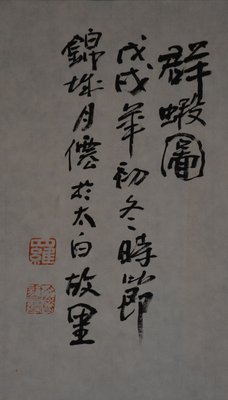 群蝦圖
戊戌年初冬時節
錦城月儒於太白故里